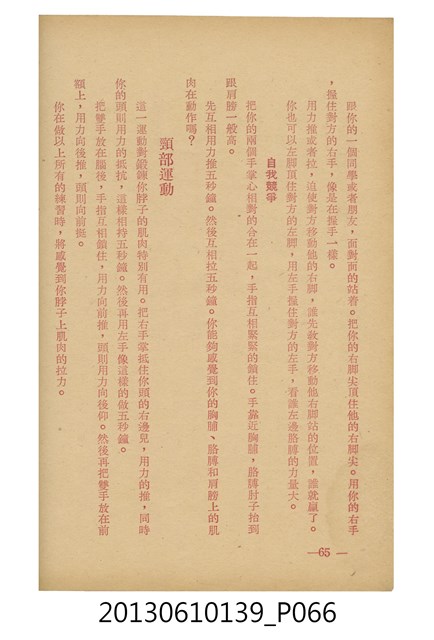 跟你的一個同學或者朋友，面對面的站着。把你的右脚尖頂住他的右脚尖。用你的右手
，握住對方的右手，像是在握手一樣。
用力推或者拉，迫使對方移動他的右脚，誰先敎對方移動他右脚站的位置，誰就贏了。
你也可以左脚頂住對方的左脚，用左手握住對方的左手，看誰左邊胳膊的力量大。
自我競爭
把你的兩個手掌心相對的合在一起，手指互相緊緊的鎖住。手靠近胸脯，胳膊肘子抬到
跟肩膀一般高。
先互相用力推五秒鐘。然後互相拉五秒鐘。你能夠感覺到你的胸脯、胳膊和肩膀上的肌
肉在動作嗎？
頸部運動
這一運動對鍛鍊你脖子的肌肉特別有用。把右手掌抵住你頭的右邊兒，用力的推，同時
你的頭則用力的抵抗，這樣相持五秒鐘。然後再用左手像這樣的做五秒鐘。
把雙手放在腦後，手指互相鎖住，用力向前推，頭則用力向後仰。然後再把雙手放在前
額上，用力向後推，頭則向前挺。
你在做以上所有的練習時，將感覺到你脖子上肌肉的拉力。
—65—
20130610139_P066